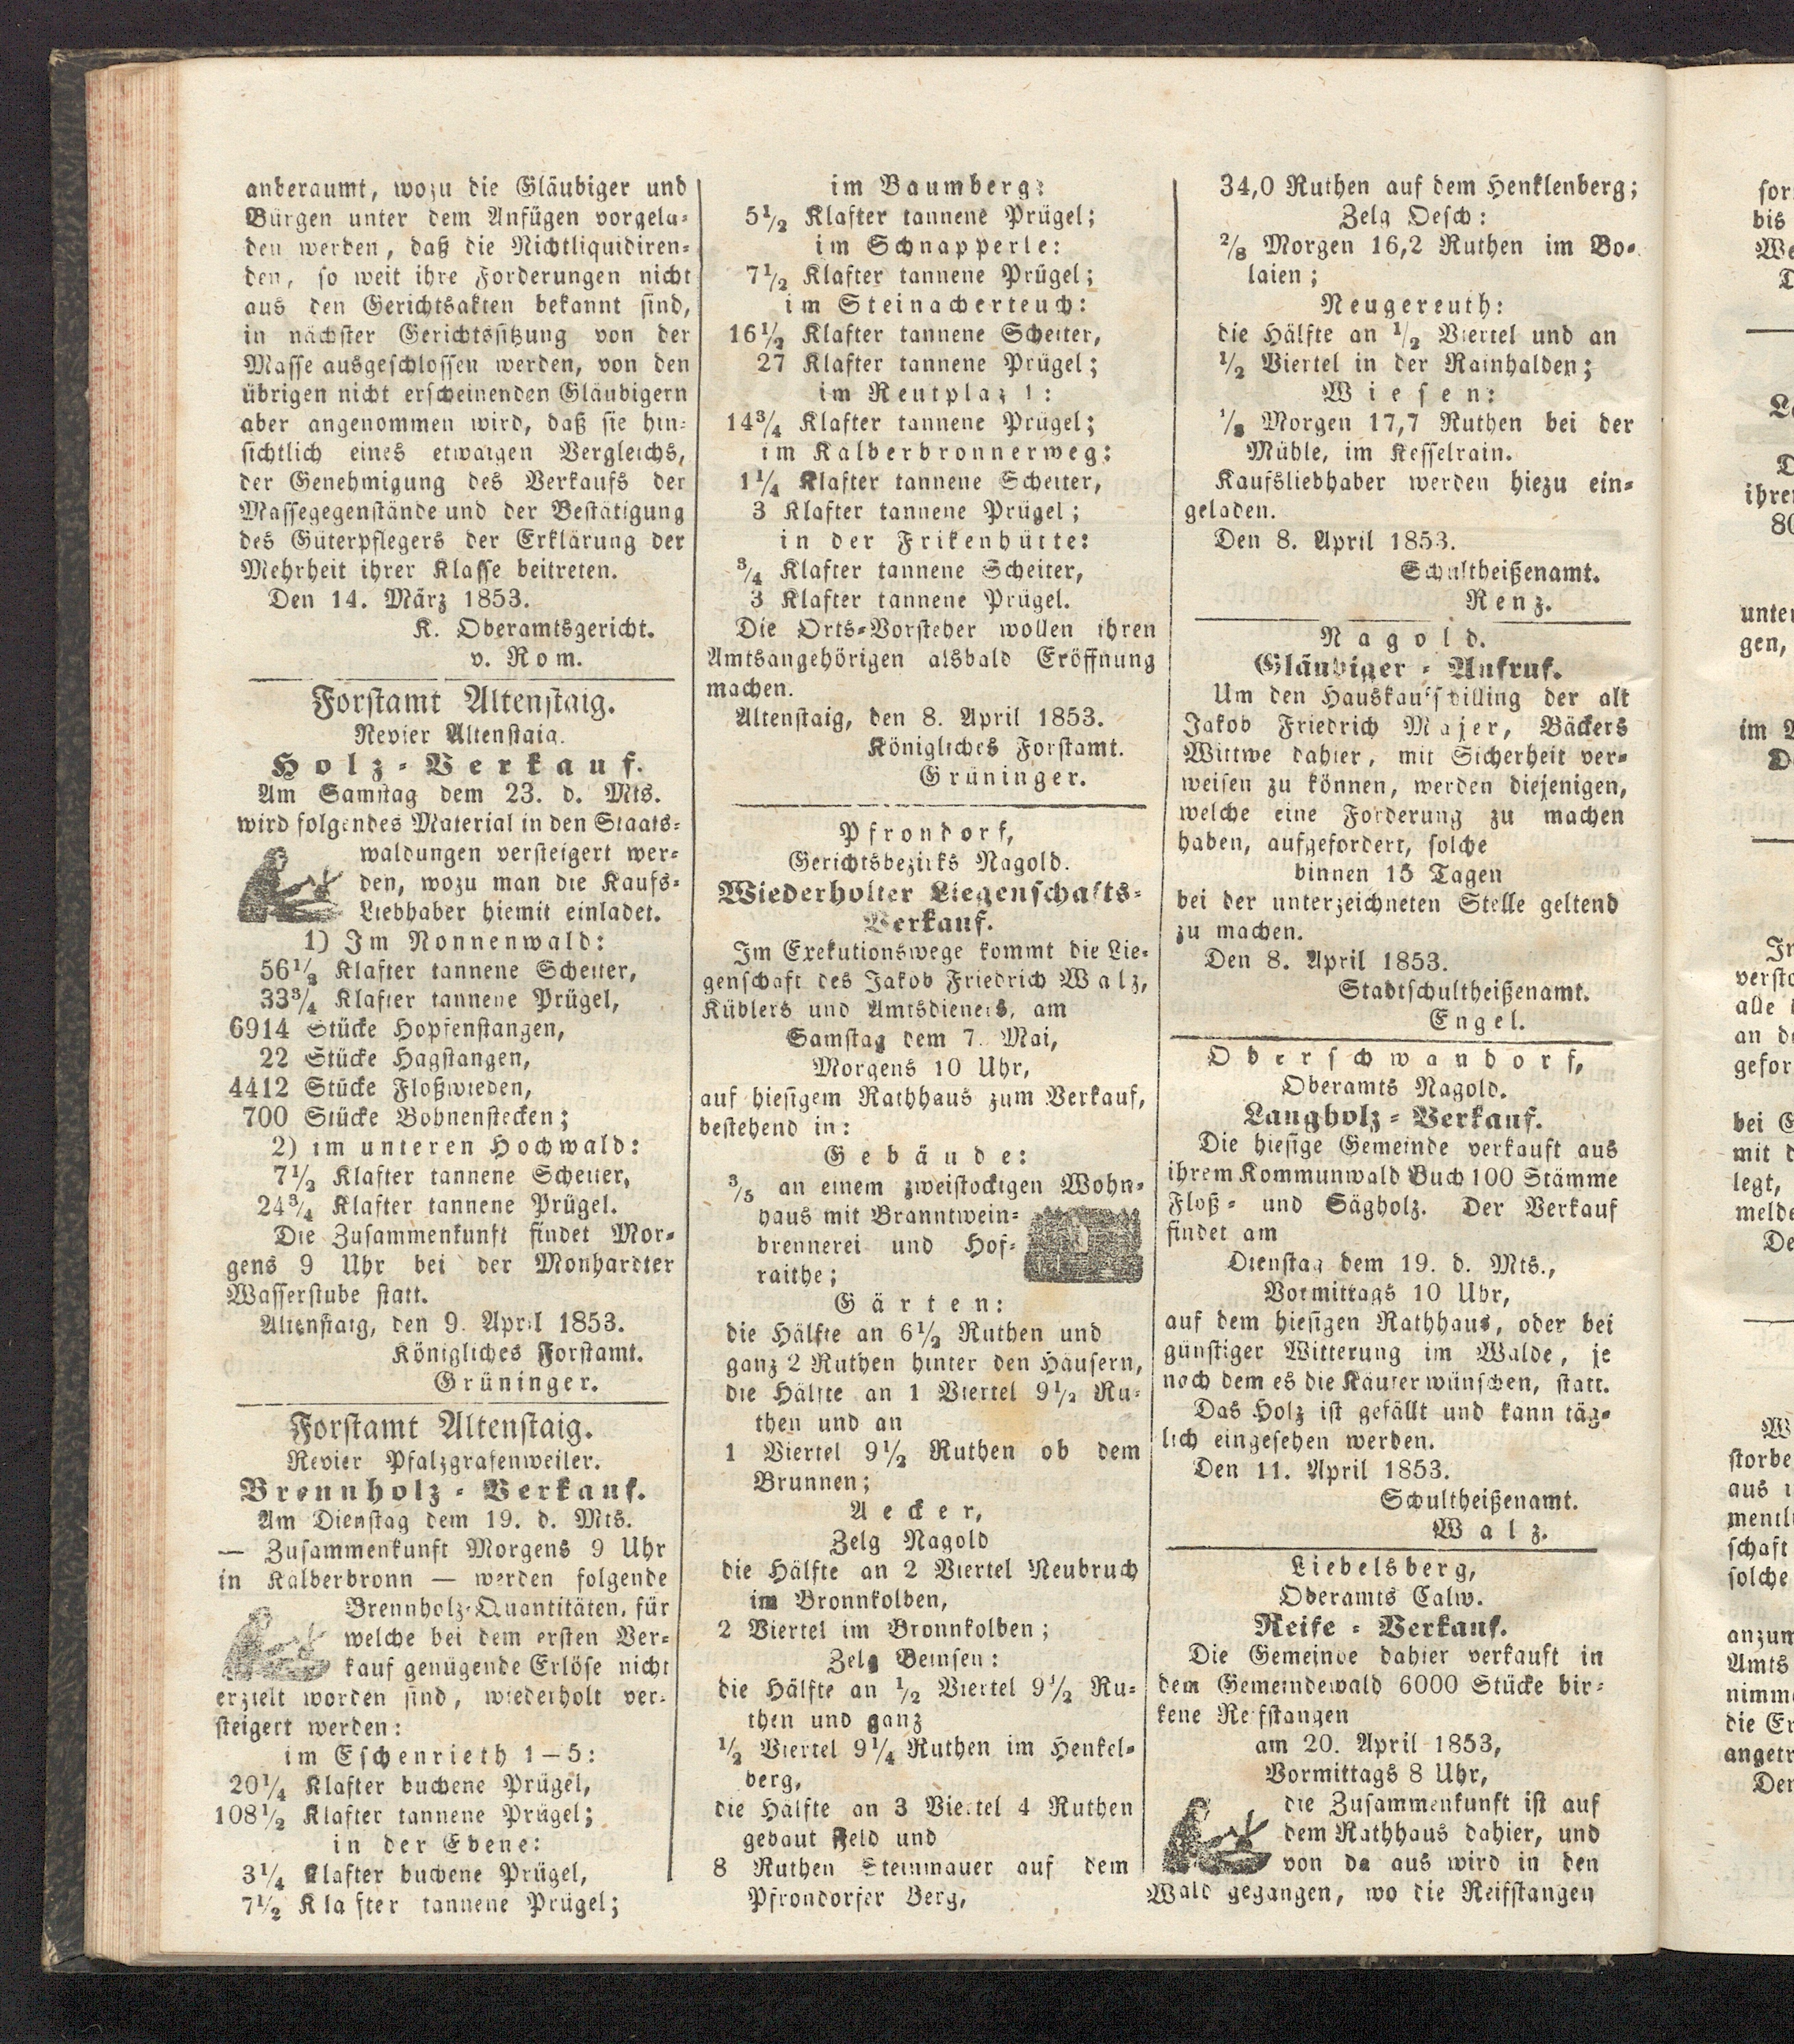 anberaumt, wozu die Gläubiger und
Bürgen unter dem Anfügen vorgela-
den werden, daß die Nichtliquidiren-
den, so weit ihre Forderungen nicht
aus den Gerichtsakten bekannt sind,
in nächster Gerichtssitzung von der
Masse ausgeschlossen werden, von den
übrigen nicht erscheinenden Gläubigern
aber angenommen wird, daß sie hin-
sichtlich eines etwaigen Vergleichs,
der Genehmigung des Verkaufs der
Massegegenstände und der Bestätigung
des Güterpflegers der Erklärung der
Mehrheit ihrer Klasse beitreten.
Den 14. März 1853.
K. Oberamtsgericht.
v. Rom.
Forstamt Altenstaig.
Revier Altenstaig.
Holz-Verkauf.
Am Samstag dem 23. d. Mts.
wird folgendes Material in den Staats-
waldungen versteigert wer-
den, wozu man die Kaufs-
Liebhaber hiemit einladet.
1) Im Nonnenwald:
56½ Klafter tannene Scheiter,
33¾ Klafter tannene Prügel,
6914 Stücke Hopfenstangen,
22 Stücke Hagstangen,
4412 Stücke Floßwieden,
700 Stücke Bohnenstecken;
2) im unteren Hochwald:
7½ Klafter tannene Scheiter,
24¾ Klafter tannene Prügel.
Die Zusammenkunft findet Mor-
gens 9 Uhr bei der Monhardter
Wasserstube statt.
Altenstaig, den 9. April 1853.
Königliches Forstamt.
Grüninger.
Forstamt Altenstaig.
Revier Pfalzgrafenweiler.
Brennholz-Verkauf.
Am Dienstag dem 19. d. Mts.
— Zusammenkunft Morgens 9 Uhr
in Kälberbronn — werden folgende
Brennholz-Quantitäten, für
welche bei dem ersten Ver-
kauf genügende Erlöse nicht
erzielt worden sind, wiederholt ver-
steigert werden:
im Eschenrieth 1–5:
20¼ Klafter buchene Prügel,
108½ Klafter tannene Prügel;
in der Ebene:
3¼ Klafter buchene Prügel,
7½ Klafter tannene Prügel;
im Baumberg:
5½ Klafter tannene Prügel;
im Schnapperle:
7½ Klafter tannene Prügel;
im Steinacherteuch:
16½ Klafter tannene Scheiter,
27 Klafter tannene Prügel;
im Reutplaz 1:
14¾ Klafter tannene Prügel;
im Kälberbronnerweg:
1¼ Klafter tannene Scheiter,
3 Klafter tannene Prügel;
in der Frikenhütte:
¾ Klafter tannene Scheiter,
3 Klafter tannene Prügel.
Die Orts-Vorsteher wollen ihren
Amtsangehörigen alsbald Eröffnung
machen.
Altenstaig, den 8. April 1853.
Königliches Forstamt.
Grüninger.
Pfrondorf,
Gerichtsbezirks Nagold.
Wiederholter Liegenschafts-
Verkauf.
Im Exekutionswege kommt die Lie-
genschaft des Jakob Friedrich Walz,
Küblers und Amtsdieners, am
Samstag dem 7. Mai,
Morgens 10 Uhr,
auf hiesigem Rathhaus zum Verkauf,
bestehend in:
Gebäude:
3/5 an einem zweistockigen Wohn-
haus mit Branntwein-
brennerei und Hof-
raithe;
Gärten:
die Hälfte an 6½ Ruthen und
ganz 2 Ruthen hinter den Häusern,
die Hälfte an 1 Viertel 9½ Ru-
then und an
1 Viertel 9½ Ruthen ob dem
Brunnen;
Aecker,
Zelg Nagold
die Hälfte an 2 Viertel Neubruch
im Bronnkolben,
2 Viertel im Bronnkolben;
Zelg Bemsen:
die Hälfte an ½ Viertel 9½ Ru-
then und ganz
½ Viertel 9¼ Ruthen im Henkel-
berg,
die Hälfte an 3 Viertel 4 Ruthen
gebaut Feld und
8 Ruthen Steinmauer auf dem
Pfrondorfer Berg,
34,0 Ruthen auf dem Henklenberg;
Zelg Oesch:
2/8 Morgen 16,2 Ruthen im Bo-
laien;
Neugereuth:
die Hälfte an ½ Viertel und an
½ Viertel in der Rainhalden;
Wiesen:
⅛ Morgen 17,7 Ruthen bei der
Mühle, im Kesselrain.
Kaufsliebhaber werden hiezu ein-
geladen.
Den 8. April 1853.
Schultheißenamt.
Renz.
Nagold.
Gläubiger-Aufruf.
Um den Hauskaufschilling der alt
Jakob Friedrich Majer, Bäckers
Wittwe dahier, mit Sicherheit ver-
weisen zu können, werden diejenigen,
welche eine Forderung zu machen
haben, aufgefordert, solche
binnen 15 Tagen
bei der unterzeichneten Stelle geltend
zu machen.
Den 8. April 1853.
Stadtschultheißenamt.
Engel.
Oberschwandorf,
Oberamts Nagold.
Langholz-Verkauf.
Die hiesige Gemeinde verkauft aus
ihrem Kommunwald Buch 100 Stämme
Floß- und Sägholz. Der Verkauf
findet am
Dienstag dem 19. d. Mts.,
Vormittags 10 Uhr,
auf dem hiesigen Rathhaus, oder bei
günstiger Witterung im Walde, je
nach dem es die Käufer wünschen, statt.
Das Holz ist gefällt und kann täg-
lich eingesehen werden.
Den 11. April 1853.
Schultheißenamt.
Walz.
Liebelsberg,
Oberamts Calw.
Reife-Verkauf.
Die Gemeinde dahier verkauft in
dem Gemeindewald 6000 Stücke bir-
kene Reifstangen
am 20. April 1853,
Vormittags 8 Uhr,
die Zusammenkunft ist auf
dem Rathhaus dahier, und
von da aus wird in den
Wald gegangen, wo die Reifstangen